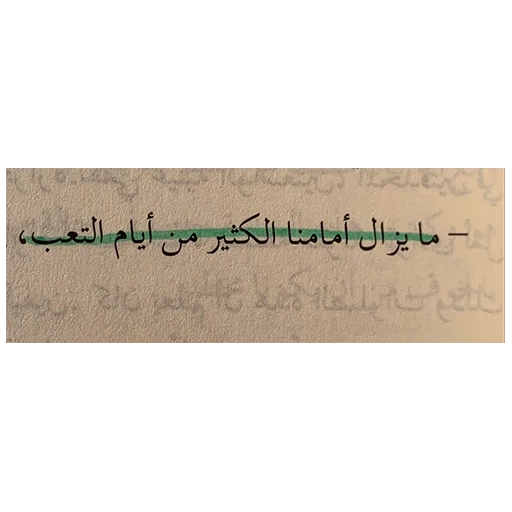 – ما يزال أمامنا الكثير من أيام التعب،